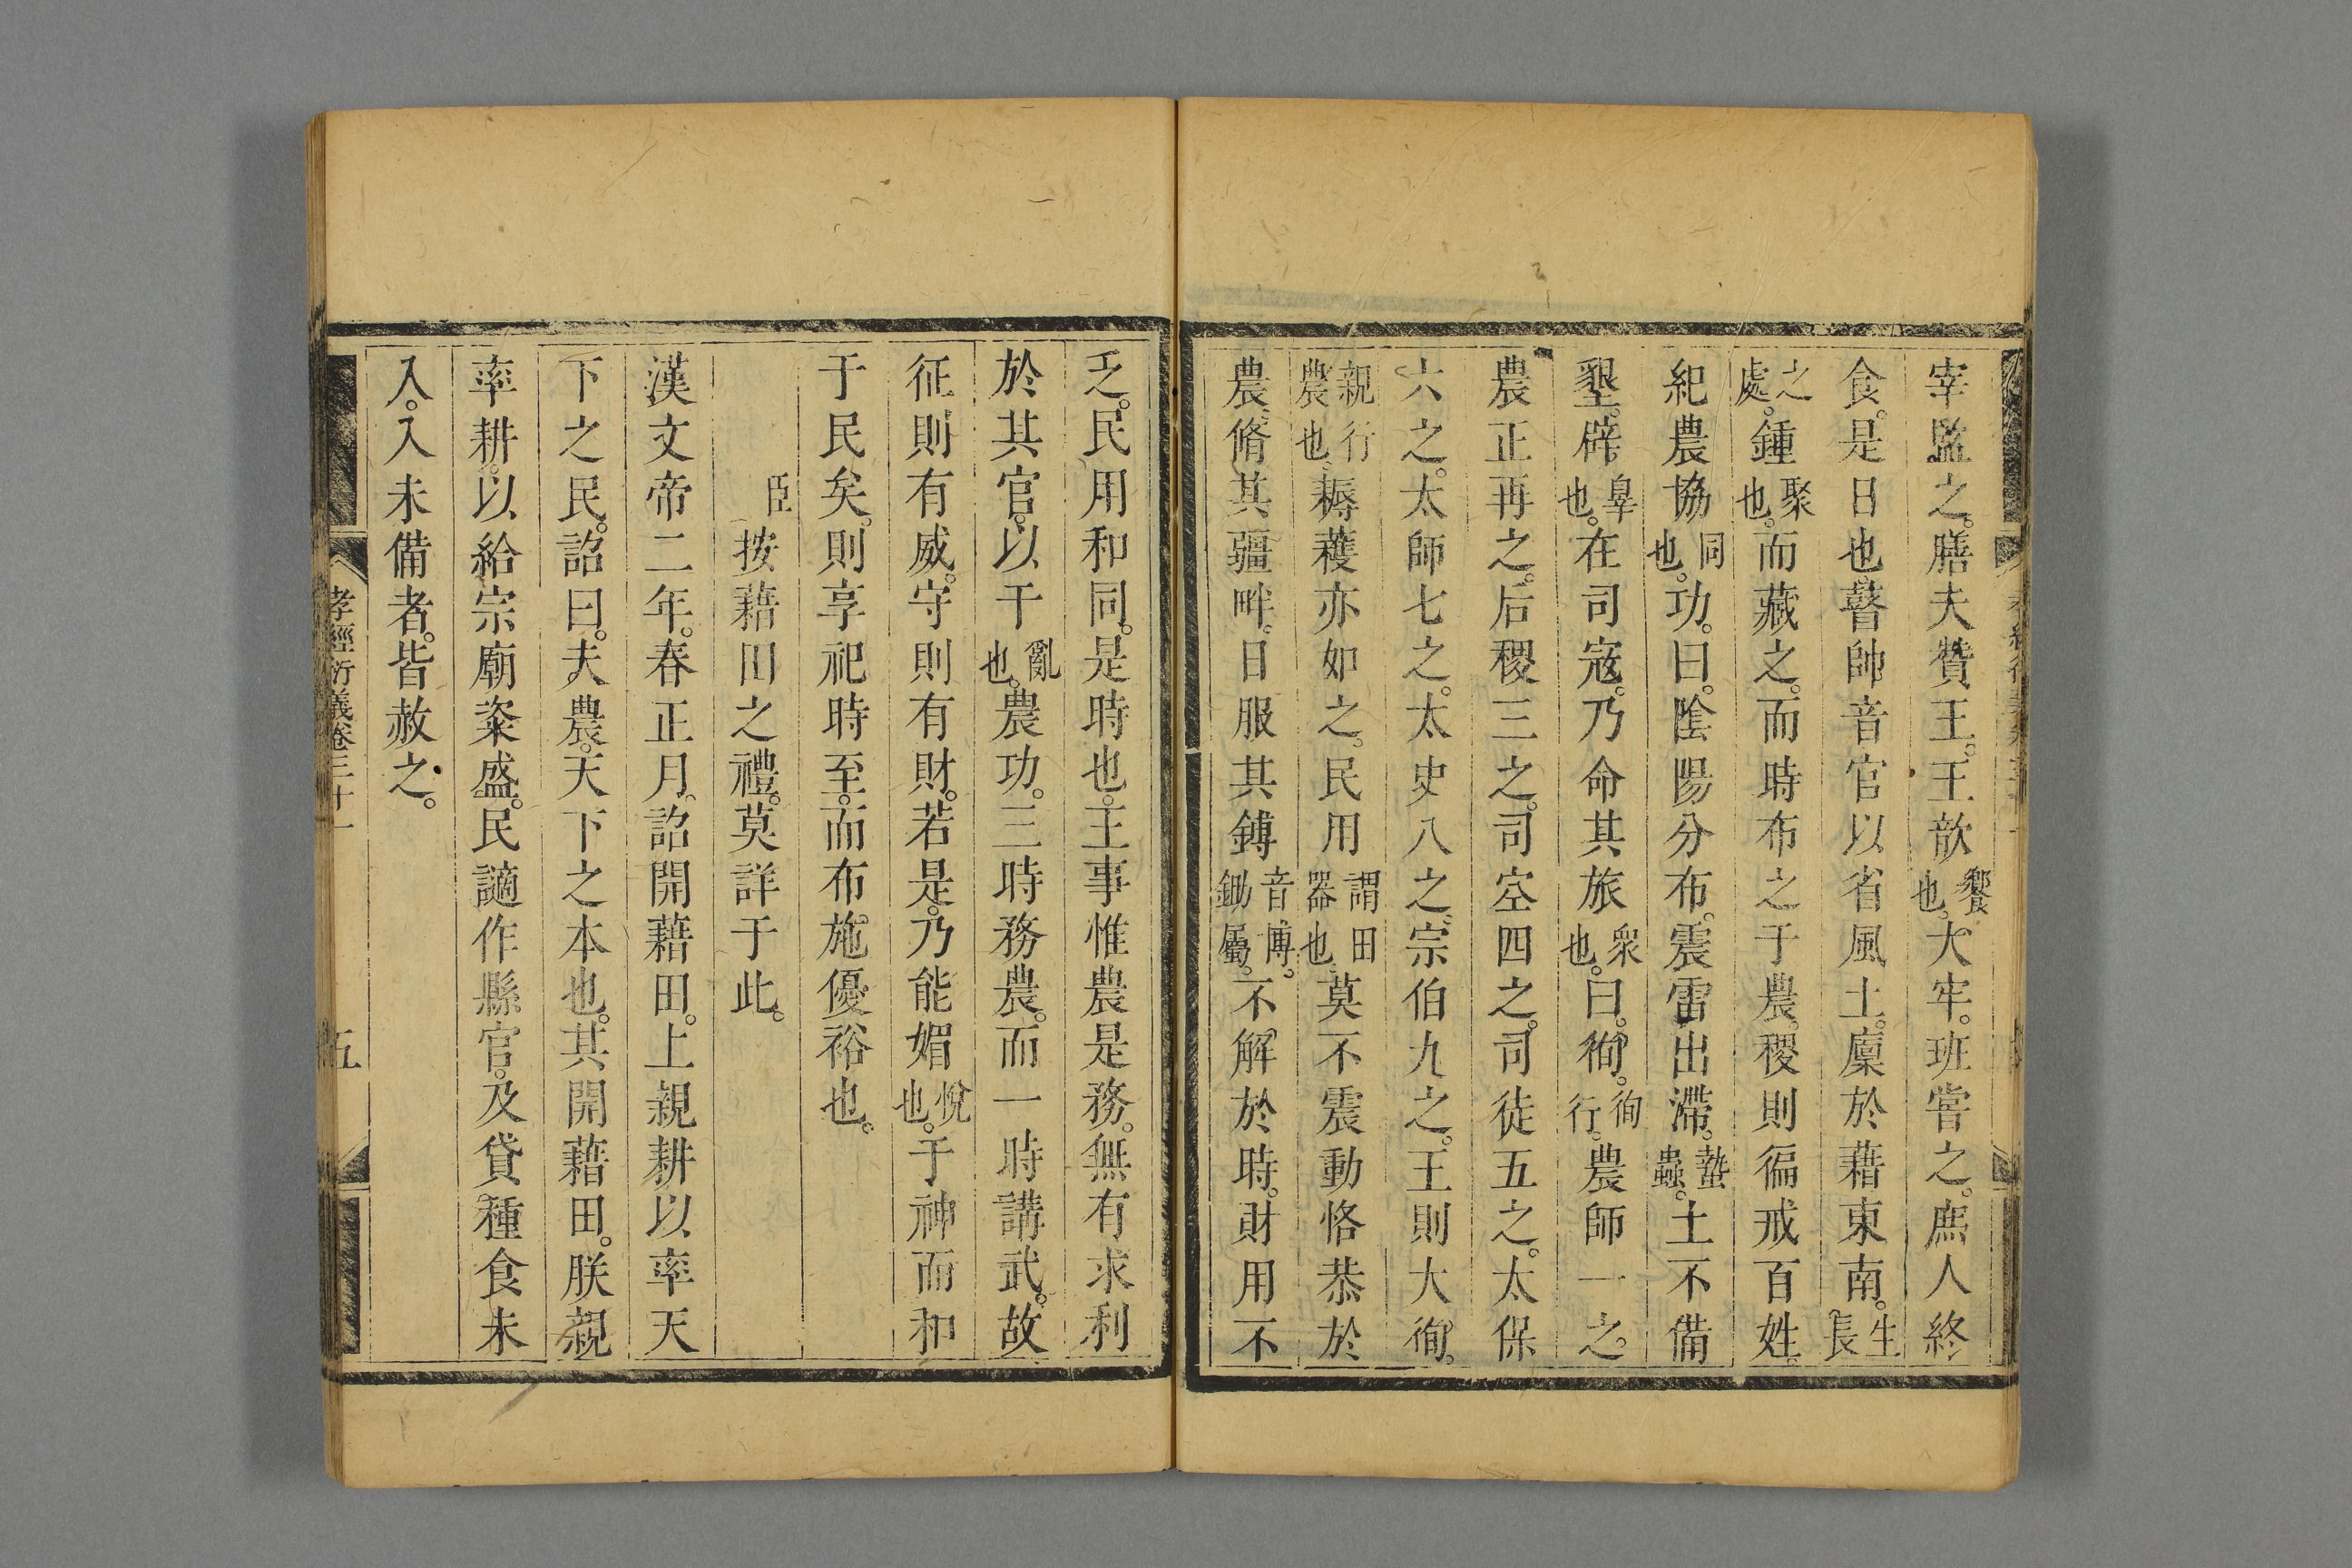 宰監之。膳夫贊王。王歆饗也。大牢。班嘗之。庶人終
食。是日也。瞽帥音官以省風土。廩於藉東南。生長
之處。鍾聚也。而藏之。而時布之于農。稷則徧戒百姓。
紀農協同也。功。曰。陰陽分布。震雷出滯。蟄蟲。土不備
墾。辟辠也。在司寇。乃命其旅衆也。曰。徇。徇行。農師一之。
農正再之。后稷三之。司空四之。司徒五之。太保
六之。太師七之。太史八之。宗伯九之。王則大徇。
親行農也。耨穫亦如之。民用謂田器也。莫不震動恪恭於
農。脩其疆畔。日服其鎛音博。鋤屬。不解於時。財用不
乏。民用和同。是時也。王事惟農是務。無有求利
於其官。以干亂也。農功。三時務農。而一時講武。故
征則有威。守則有財。若是。乃能媚悅也。于神而和
于民矣。則享祀時至。而布施優裕也。
臣按藉田之禮。莫詳于此。
漢文帝二年。春正月。詔開藉田。上親耕以率天
下之民。詔曰。夫農。天下之本也。其開藉田。朕親
率耕。以給宗廟粢盛。民讁作縣官。及貸種食未
入。入未備者。皆赦之。
孝經衍義卷三十一
五